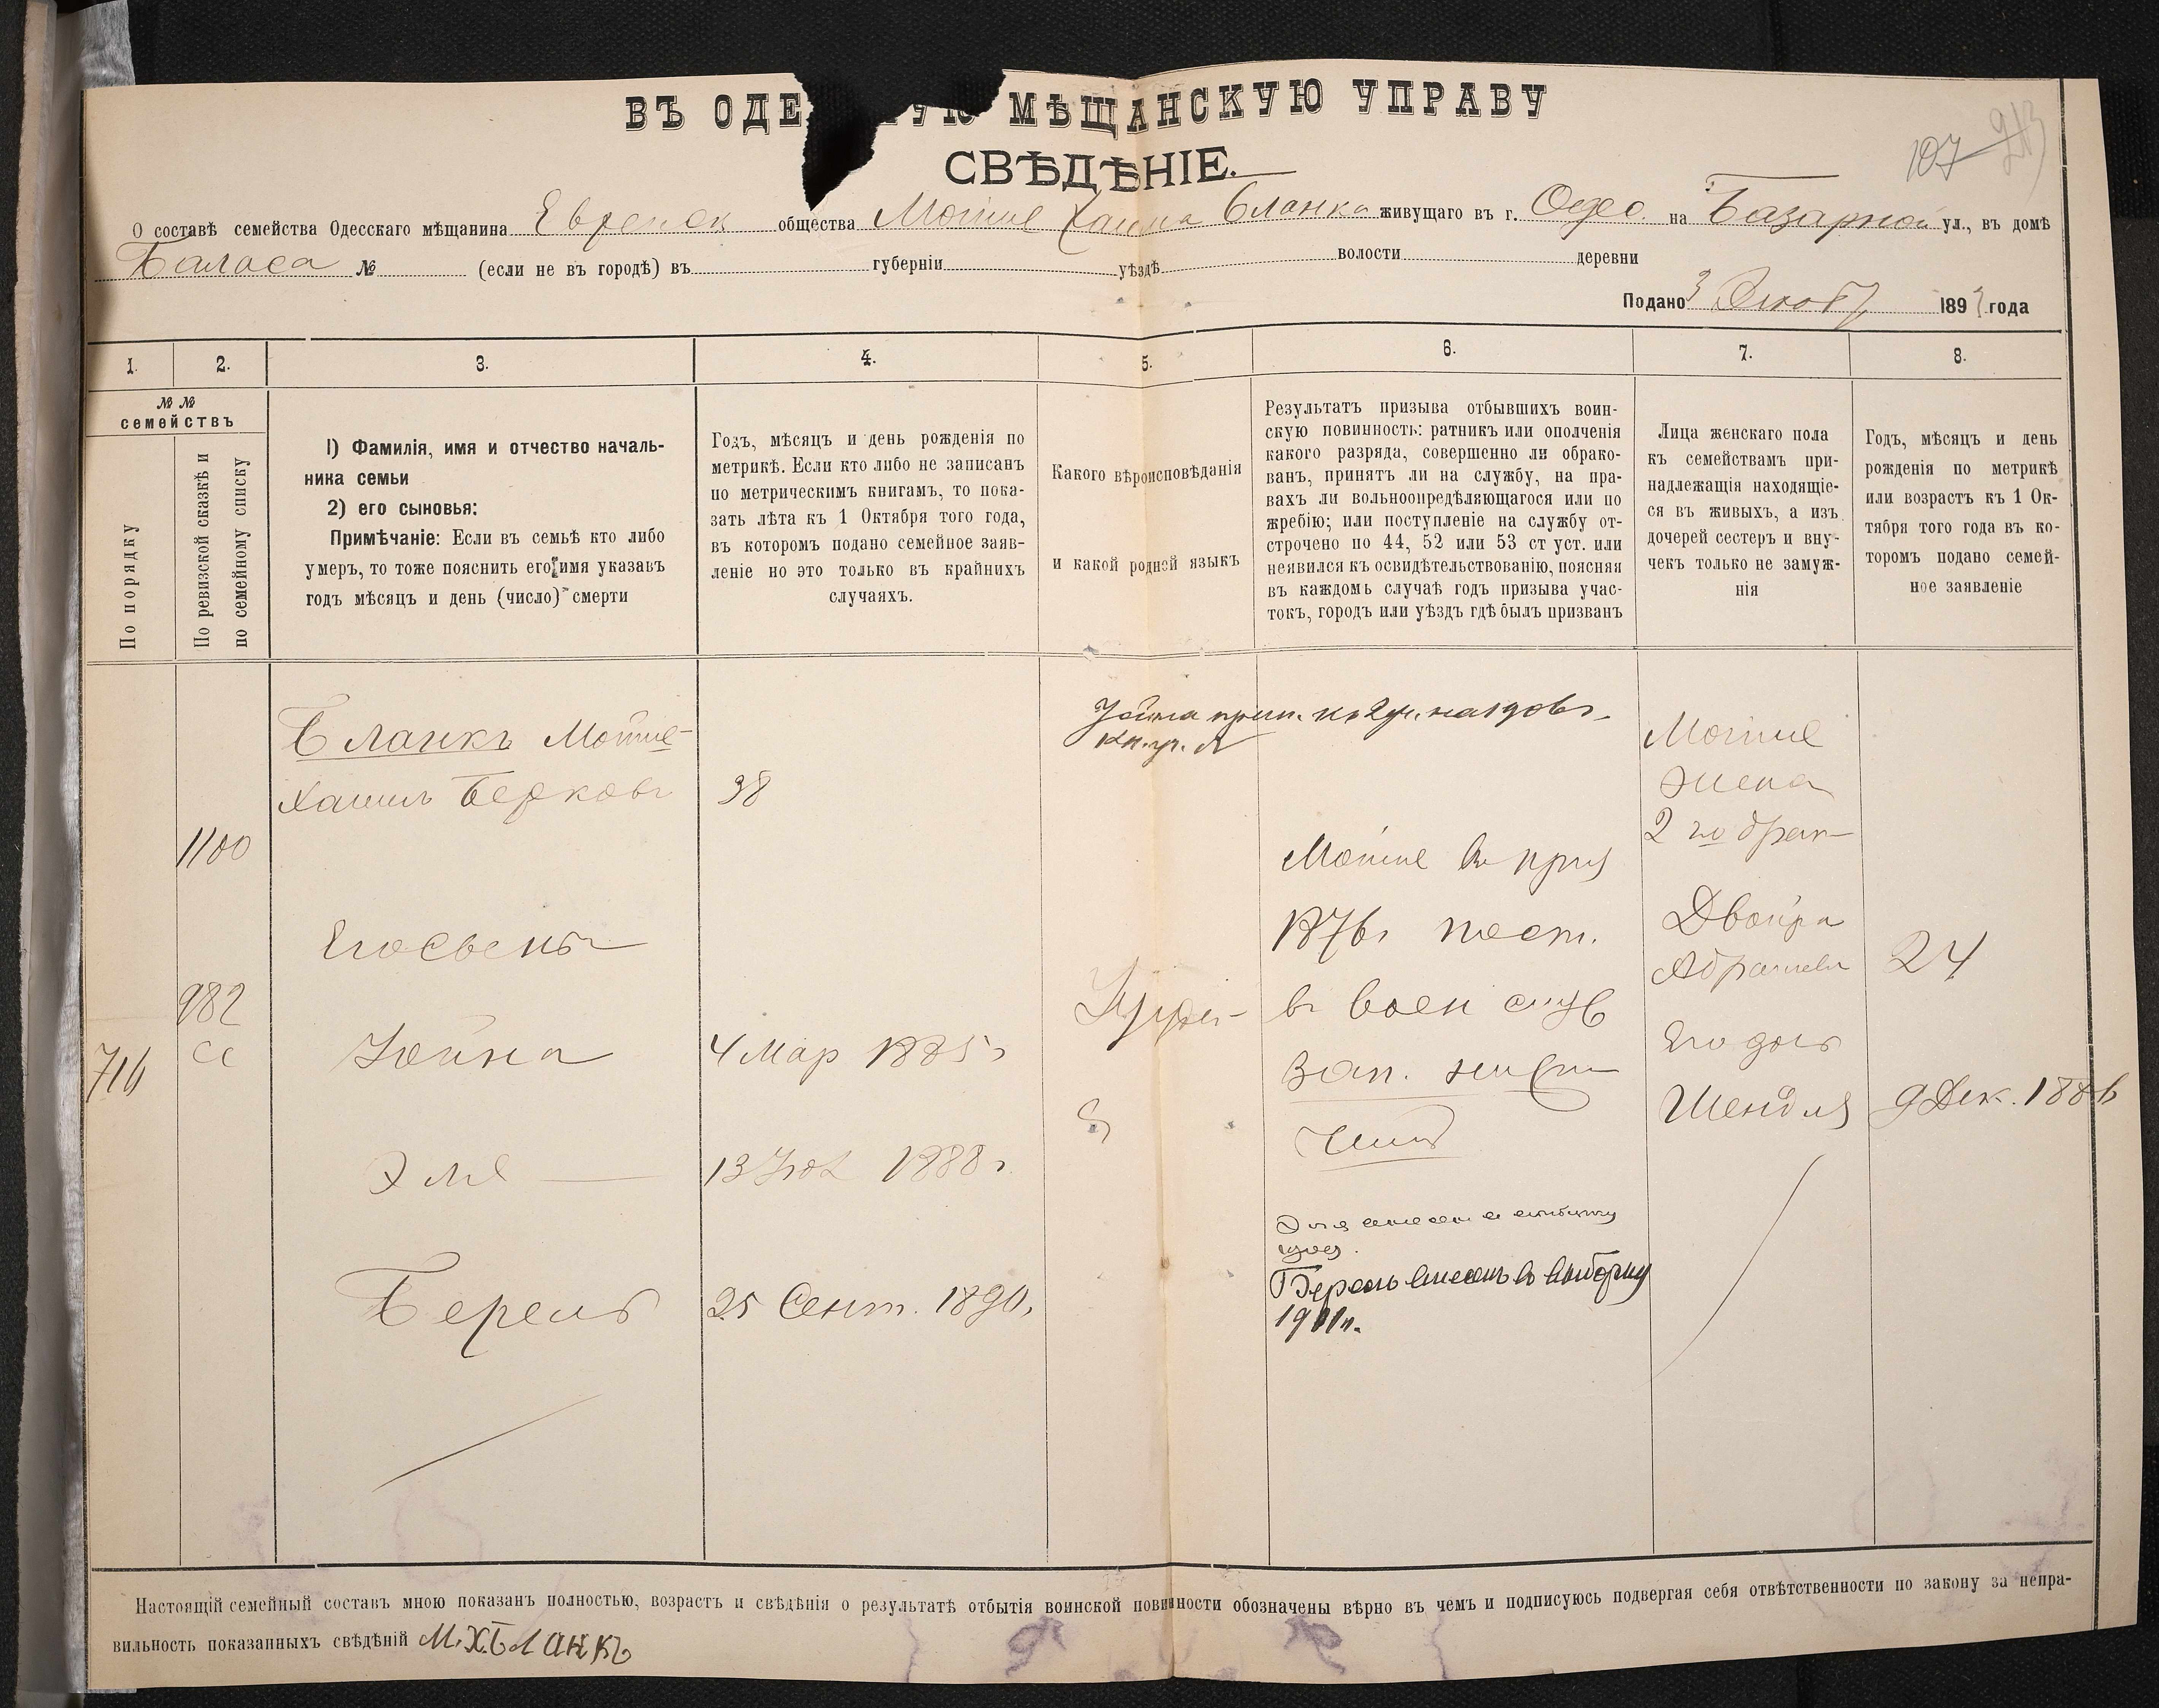 ВЪ ОДЕ УЮ МѢЩАНСКУЮ УПРАВУ
СВѢДѢНІЕ.
107 213
О составѣ семейства Одесскаго мѣщанина Еврейск общества Мотие Хаима Бланка живущаго въ г. Одес. на Базарной ул., въ домѣ
Баласа № (если не въ городѣ) въ губерніи уѣздѣ волости деревни
Подано 3 189 года
1. 2. 3. 4. 5. 6. 7. 8.
№ №
семействъ
По порядку
По ревизской сказкѣ и
по семейному списку
1) Фамилія, имя и отчество началь-
ника семьи
2) его сыновья:
Примѣчаніе: Если въ семьѣ кто либо
умеръ, то тоже пояснить его имя указавъ
годъ мѣсяцъ и день (число) смерти
Годъ, мѣсяцъ и день рожденія по
метрикѣ. Если кто либо не записанъ
по метрическимъ книгамъ, то пока-
зать лѣта къ 1 Октября того года,
въ которомъ подано семейное заяв-
леніе но это только въ крайнихъ
случаяхъ.
Какого вѣроисповѣданія
и какой родной языкъ
Результатъ призыва отбывшихъ воин-
скую повинность: ратникъ или ополченія
какого разряда, совершенно ли обрако-
ванъ, принятъ ли на службу, на пра-
вахъ ли вольноопредѣляющагося или по
жребію; или поступленіе на службу от-
строчено по 44, 52 или 53 ст уст. или
неявился къ освидѣтельствованію, поясняя
въ каждомъ случаѣ годъ призыва учас-
токъ, городъ или уѣздъ гдѣ былъ призванъ
Лица женскаго пола
къ семействамъ при-
надлежащія находящіе-
ся въ живыхъ, а изъ
дочерей сестеръ и вну-
чекъ только не замуж-
нія
Годъ, мѣсяцъ и день
рожденія по метрикѣ
или возрастъ къ 1 Ок-
тября того года въ ко-
торомъ подано семей-
ное заявленіе
716
1100
982
Бланкъ Мотие-
Хаимъ Берковъ
Его сыны
Іойна
Эле
Берель
38
4 Мар 1885 г
13 Іюл 1888 г.
25 Сент. 1890 г
Іойна прип. къ
Іудей-
Мотие въ приз
1876 г пост.
въ воен служ
Зап.
Берель внесенъ въ выборку
1911 г.
Мотие
жена
2 го брак
Двойра
Абрамова
Его дочь
Шендля
24
9 Дек. 1886
Настоящій семейный составъ мною показанъ полностью, возрастъ и свѣдѣнія о результатѣ отбытія воинской повинности обозначены вѣрно въ чемъ и подписуюсь подвергая себя отвѣтственности по закону за непра-
вильность показанныхъ свѣдѣній М. Х. Бланкъ